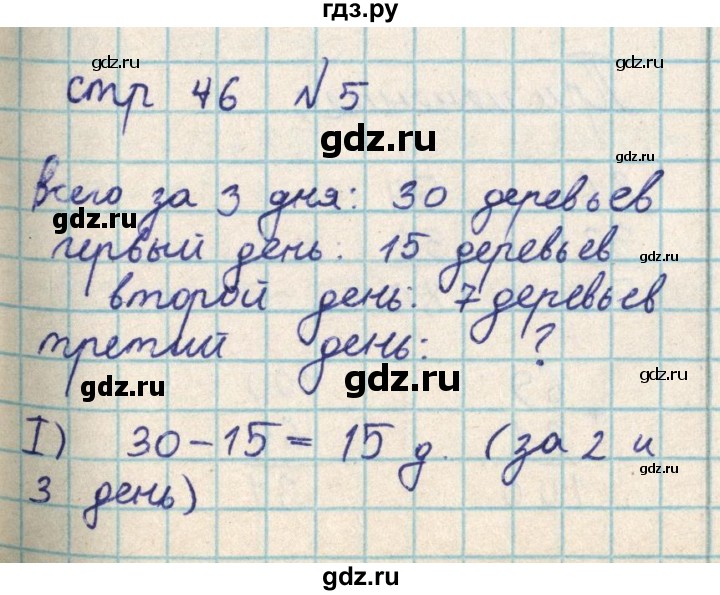 гдз.ру
gdz.ru
стр 46 №5
gdz.ru
gdz.ru
всего за 3 дня: 30 деревьев
gdz.ru
первый день: 15 деревьев
gdz.ru
второй день: 7 деревьев
третий день: ?
gdz.ru
gdz.ru
gdz.ru
I) 30-15= 15 д. (за 2 и
gdz.ru
gdz.ru
3 день)
gdz.ru